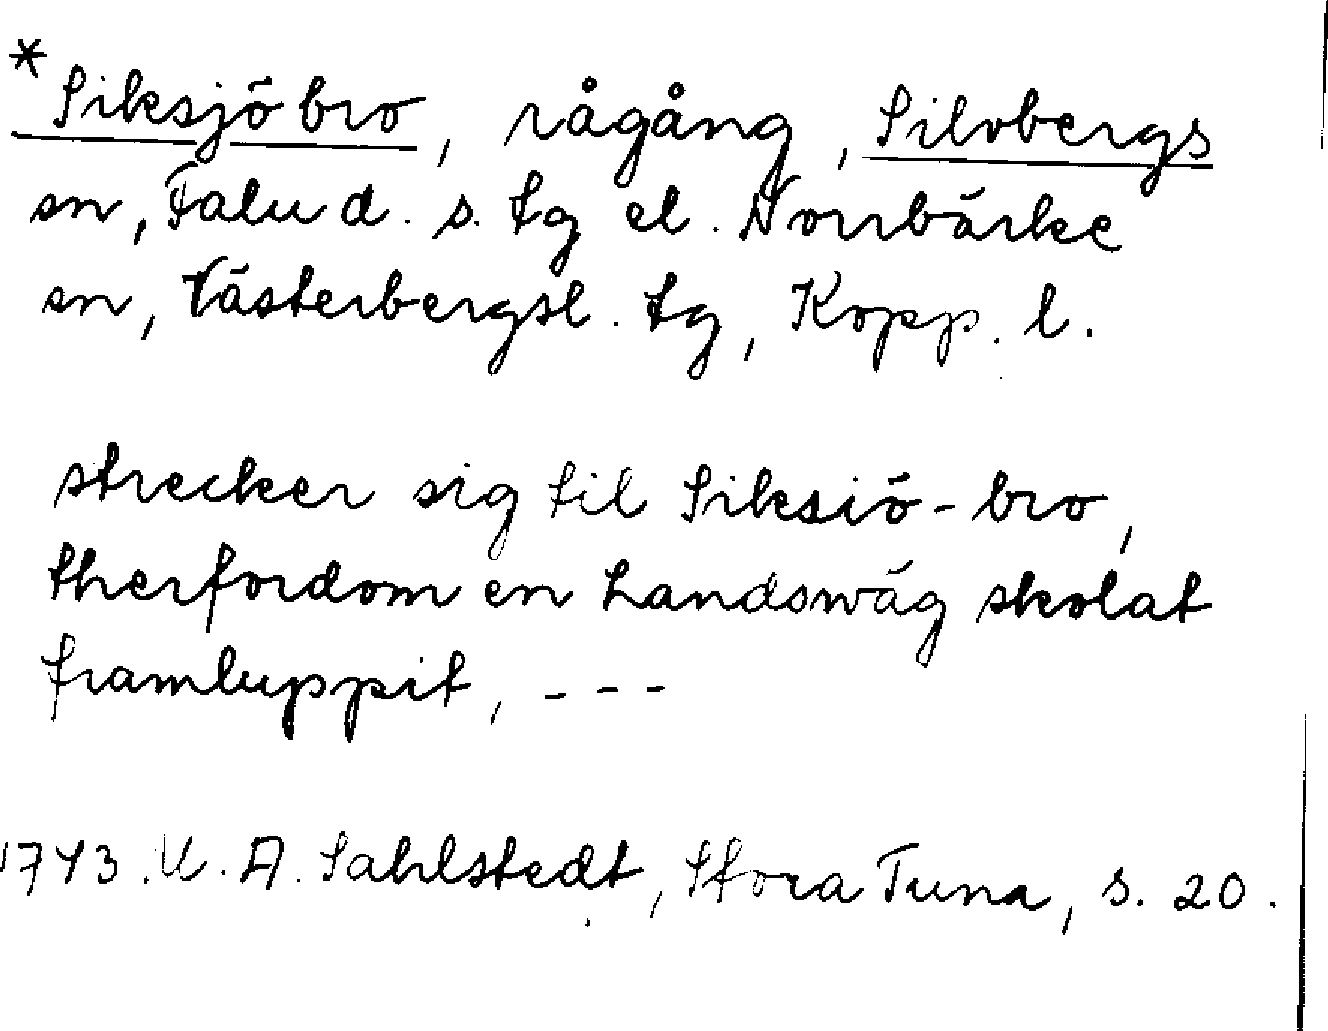 *Siksjö bro, rågång, Silvbergs
sn, Falu d. s. tg el. Norrbärke
sn, Västerbergsl. tg, Kopp. l.
strecker sig til Siksiö-bro,
ther fordom en Landswäg skolat
framluppit, ---
1743. U. A. Sahlstedt, Stora Tuna, s. 20.